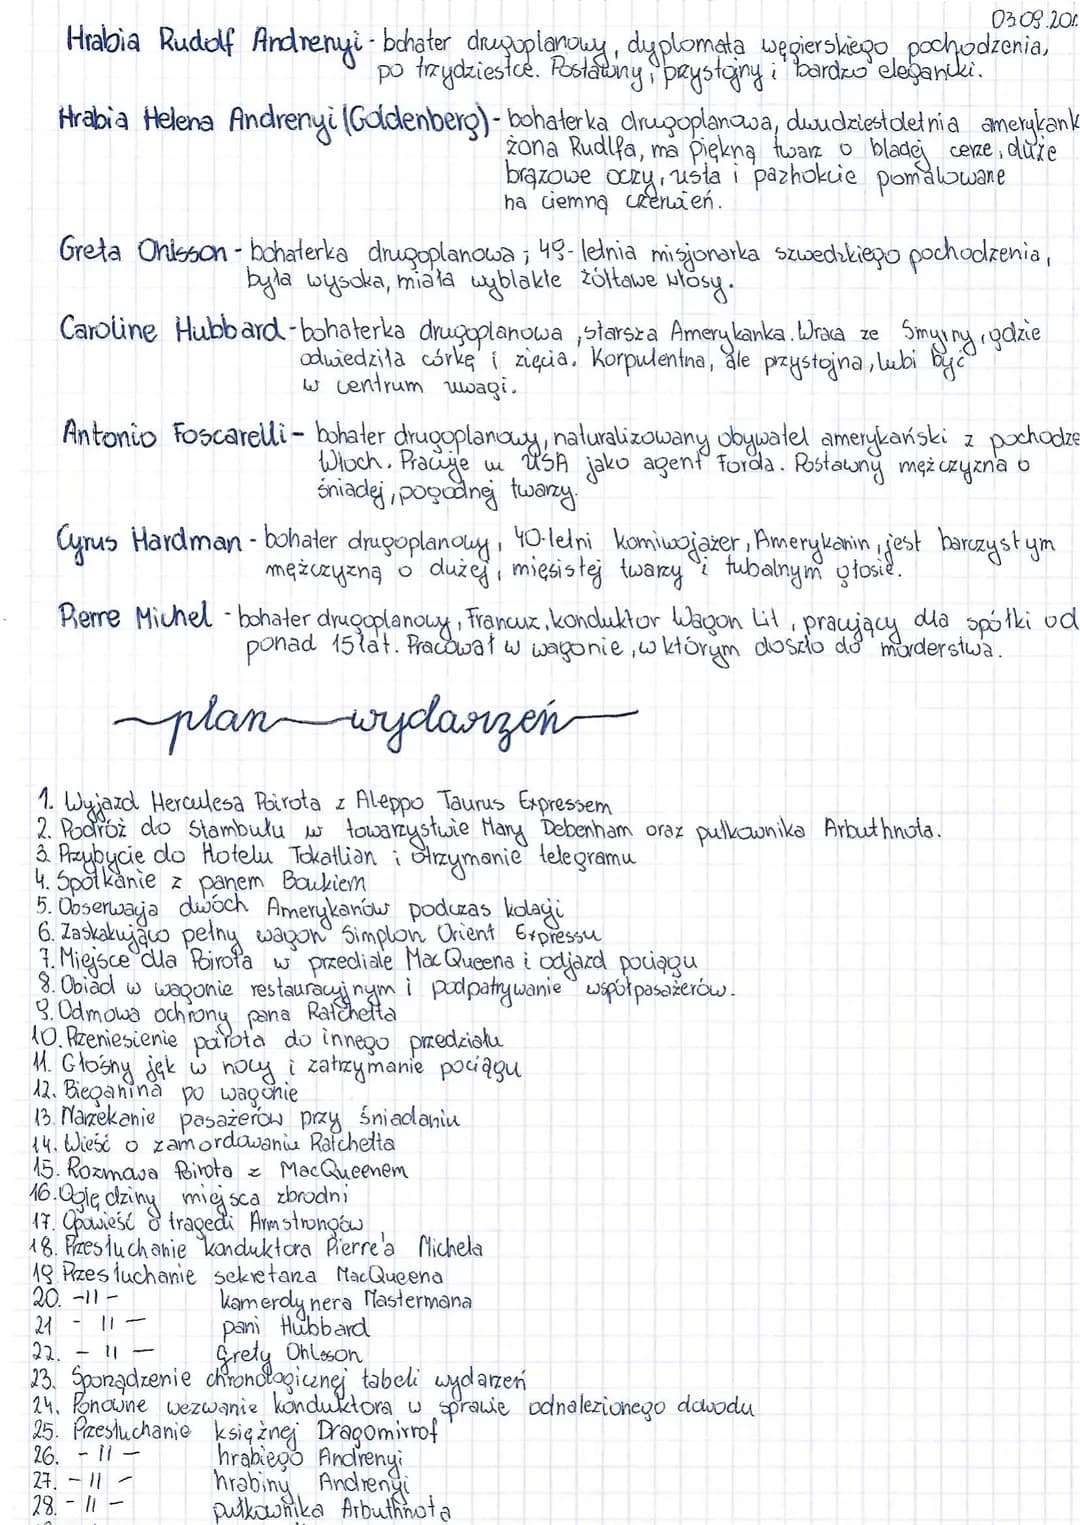 03.09.20
Hrabia Rudolf Andrenyi - bohater drugoplanowy, dyplomata węgierskiego pochodzenia,
po trzydziestce. Postawny, przystojny i bardzo elegancki.
Hrabia Helena Andrenyi (Goldenberg) - bohaterka drugoplanowa, dwudziestoletnia amerykank
żona Rudlfa, ma piękną twarz o bladej cerze, duże
brązowe oczy, usta i paznokcie pomalowane
na ciemną czerwień.
Greta Ohlsson - bohaterka drugoplanowa; 49-letnia misjonarka szwedzkiego pochodzenia,
była wysoka, miała wyblakłe żółtawe włosy.
Caroline Hubbard - bohaterka drugoplanowa, starsza Amerykanka. Wraca ze Smyrny, gdzie
odwiedziła córkę i zięcia. Korpulentna, ale przystojna, lubi być
w centrum uwagi.
Antonio Foscarelli - bohater drugoplanowy, naturalizowany obywatel amerykański z pochodze
Włoch. Pracuje w USA jako agent Forda. Postawny mężczyzna o
śniadej, pogodnej twarzy.
Cyrus Hardman - bohater drugoplanowy, 40-letni komiwojażer, Amerykanin, jest barczystym
mężczyzną o dużej, mięsistej twarzy i tubalnym głosie.
Pierre Michel - bohater drugoplanowy, Francuz, konduktor Wagon Lit, pracujący dla spółki od
ponad 15 lat. Pracował w wagonie, w którym doszło do morderstwa.
plan wydarzeń
1. Wyjazd Herculesa Poirota z Aleppo Taurus Expressem
2. Podróż do Stambułu w towarzystwie Mary Debenham oraz pułkownika Arbuthnota.
3. Przybycie do Hotelu Tokatlian i otrzymanie telegramu
4. Spotkanie z panem Boukiem
5. Obserwacja dwóch Amerykanów podczas kolacji
6. Zaskakująco pełny wagon Simplon Orient Expressu
7. Miejsce dla Poirota w przedziale MacQueena i odjazd pociągu
8. Obiad w wagonie restauracyjnym i podpatrywanie współpasażerów.
9. Odmowa ochrony pana Ratchetta
10. Przeniesienie poirota do innego przedziału
11. Głośny jęk w nocy i zatrzymanie pociągu
12. Bieganina po wagonie
13. Narzekanie pasażerów przy śniadaniu
14. Wieść o zamordowaniu Ratchetta
15. Rozmowa Poirota z MacQueenem
16. Oględziny miejsca zbrodni
17. Opowieść o tragedi Armstrongów
18. Przesłuchanie konduktora Pierre'a Michela
19 Przesłuchanie sekretarza MacQueena
20. -II- kamerdynera Mastermana
21 - II - pani Hubbard
22. - II - Grety Ohlsson
23. Sporządzenie chronologicznej tabeli wydarzeń
24. Ponowne wezwanie konduktora w sprawie odnalezionego dowodu
25. Przesłuchanie księżnej Dragomirrof
26. - II - hrabiego Andrenyi
27. - II - hrabiny Andrenyi
28. - II - pułkownika Arbuthnota